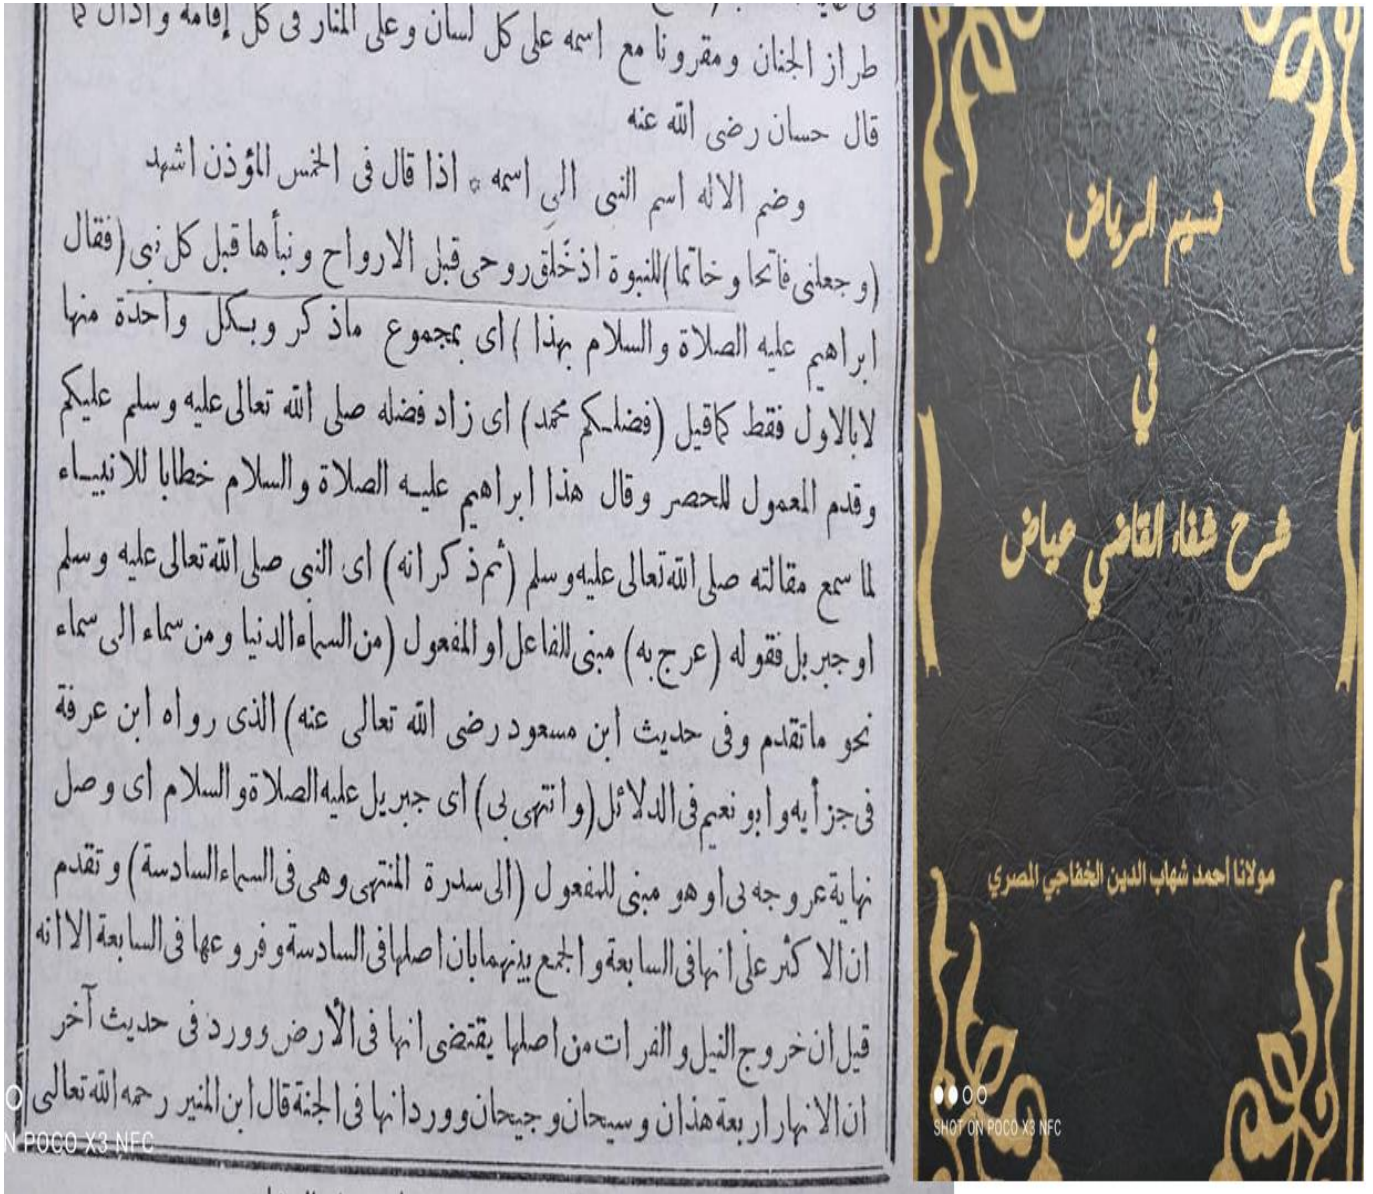 طراز الجنان ومقرونا مع اسمه على كل لسان وعلى المنار فى كل إقامة واذان كما
قال حسان رضى الله عنه
وضم الاله اسم النبى الى اسمه * اذا قال فى الخمس المؤذن اشهد
(وجعلنى فاتحا وخاتما) للنبوة اذ خلق روحى قبل الارواح ونبأها قبل كل نبى (فقال
ابراهيم عليه الصلاة والسلام بهذا) اى بمجموع ماذكر وبكل واحدة منها
لابالاول فقط كماقيل (فضلكم محمد) اى زاد فضله صلى الله تعالى عليه وسلم عليكم
وقدم المعمول للحصر وقال هذا ابراهيم عليه الصلاة والسلام خطابا للانبياء
لما سمع مقالته صلى الله تعالى عليه وسلم (ثم ذكر انه) اى النبى صلى الله تعالى عليه وسلم
او جبريل فقوله (عرج به) مبنى للفاعل او المفعول (من السماء الدنيا ومن سماء الى سماء
نحو ماتقدم وفى حديث ابن مسعود رضى الله تعالى عنه) الذى رواه ابن عرفة
فى جزأيه وابو نعيم فى الدلائل (وانتهى بى) اى جبريل عليه الصلاة والسلام اى وصل
نهاية عروجه بى او هو مبنى للمفعول (الى سدرة المنتهى وهى فى السماء السادسة) وتقدم
ان الاكثر على انها فى السابعة والجمع بينهما بان اصلها فى السادسة وفروعها فى السابعة الا انه
قيل ان خروج النيل والفرات من اصلها يقتضى انها فى الأرض وورد فى حديث آخر
ان الانهار اربعة هذان وسيحان وجيحان وورد انها فى الجنة قال ابن المنير رحمه الله تعالى
N POCO X3 NFC
نسيم الرياض
في
شرح شفاء القاضي عياض
مولانا أحمد شهاب الدين الخفاجي المصري
SHOT ON POCO X3 NFC